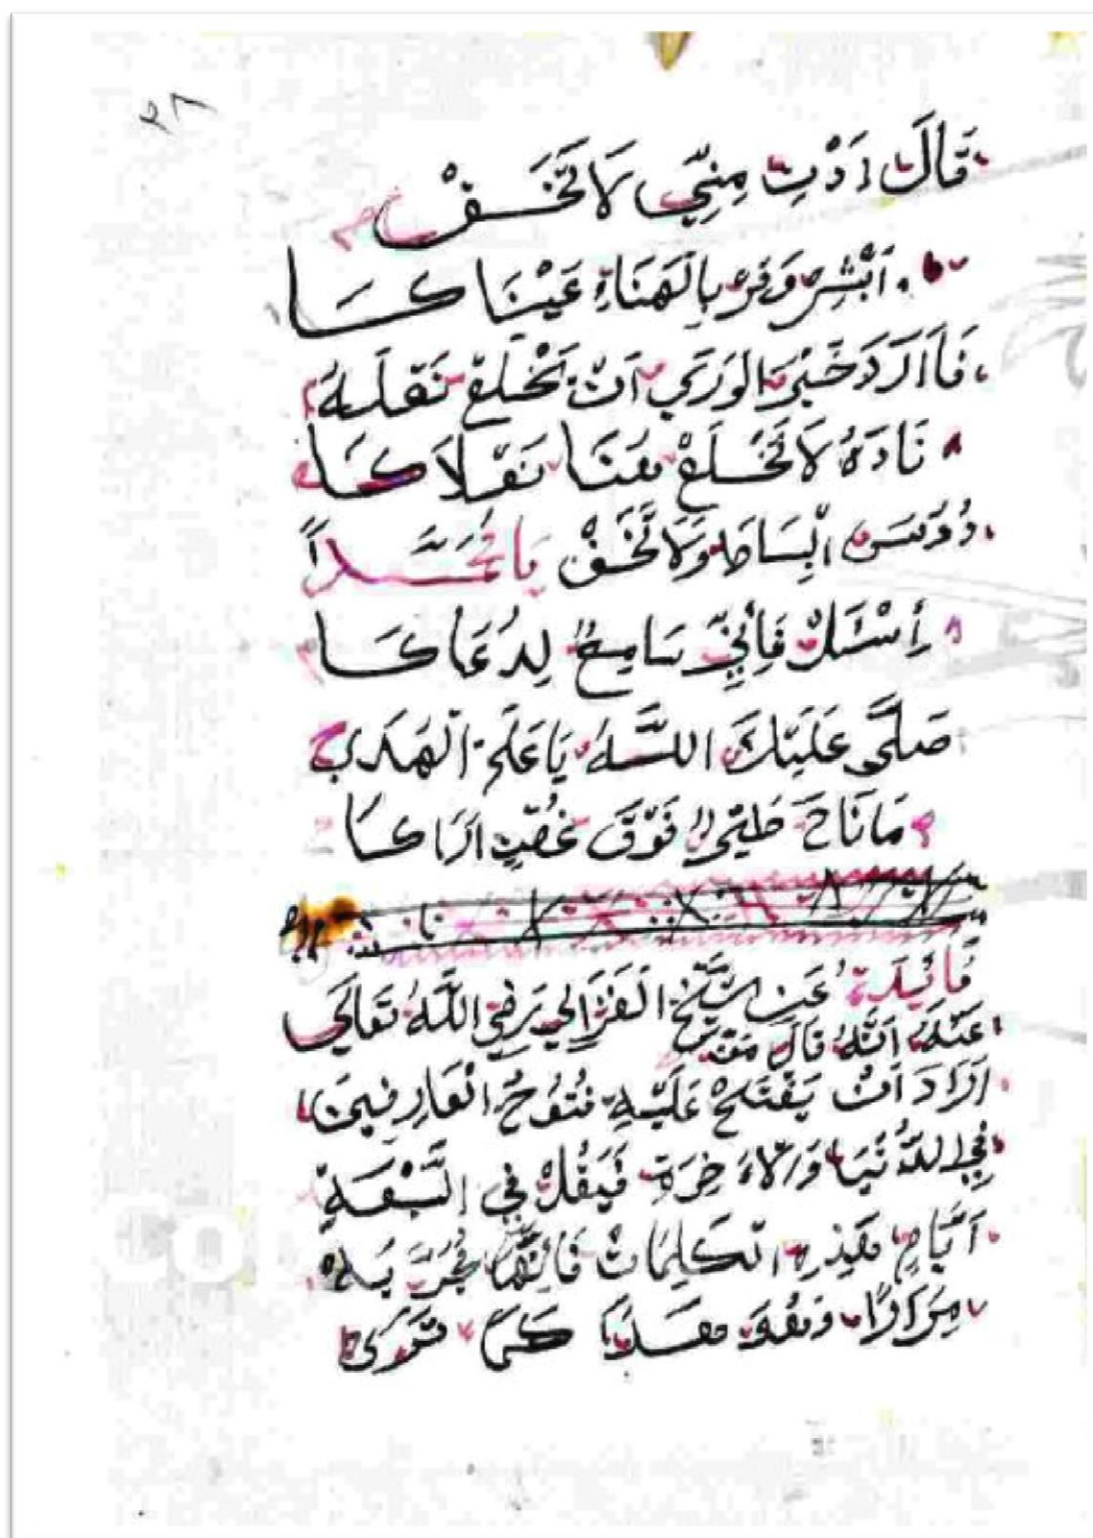 ٢٨
قَالَ ادْنِ مِنِّي لَا تَخَفْ
اَبْشِرْ وَقَرْ بِالْهَنَاءِ عَيْنَاكَا
فَاَرَادَ خَيْرَ الْوَرَي اَنْ يَخْلَعْ نَعْلَهُ
نَادَهُ لَا تَخْلَعْ هُنَا نَعْلَاكَا
دُوسَ الْبِسَاطَ وَلَا تَخَفْ يَا مُحَمَّدًا
أِسْئَلْ فَاِنِّي سَامِعٌ لِدُعَاكَا
صَلَّى عَلَيْكَ اللّٰهُ يَا عَلَمَ الْهُدَى
مَا نَاحَ طَيْرٌ فَوْقَ غُصْنِ اَرَاكَا
فَائِيدَةُ عَنِ الشَّيْخِ الْغَزَّالِي رَضِيَ اللّٰهُ تَعَالَى
عَنْهُ اَنَّهُ قَالَ مَنْ
اَرَادَ اَنْ يَفْتَحْ عَلَيْهِ فُتُوحَ الْعَارِفِينَ
فِي الدُّنْيَا وَالْاٰخِرَةِ فَيَقُلْ فِي السَّبْعَةِ
اَيَّامٍ هَذِهِ الْكَلِمَاتْ فَاِنَّهَا مُجَرَّبَةْ
مِرَارًا وَهُوَ هَذَا كَمَا تَرَى